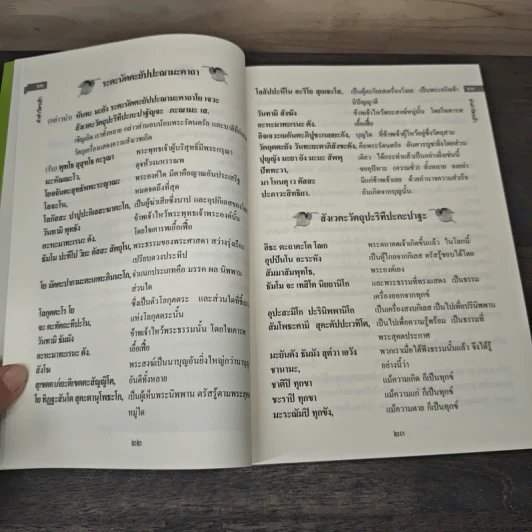 ระตะนัตตะยัปปะณามะคาถา
(หันทะ มะยัง ระตะนัตตะยัปปะณามะคาถาโย เจวะ
สังเวคะวัตถุปะริทีปะกะปาฐัญจะ ภะณามะ เส.
(รับ) พุทโธ สุสุทโธ กะรุณา พระพุทธเจ้าผู้บริสุทธิ์มีพระกรุณา
มะหัณณะโว, ดุจห้วงมหรรณพ
โยจจันตะสุทธัพพะระญาณะ พระองค์ใด มีตาคือญาณอันประเสริฐ
โลจะโน, หมดจดถึงที่สุด
โลกัสสะ ปาปูปะกิเลสะฆาตะโก, เป็นผู้ฆ่าเสียซึ่งบาป และอุปกิเลสของโลก
วันทามิ พุทธัง ข้าพเจ้าไหว้พระพุทธเจ้าพระองค์นั้น
อะหะมาทะเรนะ ตัง. โดยใจเคารพเอื้อเฟื้อ
ธัมโม ปะทีโป วิยะ ตัสสะ สัตถุโน, พระธรรมของพระศาสดา สว่างรุ่งเรือง
เปรียบดวงประทีป
โย มัคคะปากามะตะเภทะภินนะโก, จำแนกประเภทคือ มรรค ผล นิพพาน
ส่วนใด
โลกุตตะโร โย ซึ่งเป็นตัวโลกุตตระ และส่วนใดที่ชี้แนว
จะ ตะทัตถะทีปะโน, แห่งโลกุตตระนั้น
วันทามิ ธัมมัง ข้าพเจ้าไหว้พระธรรมนั้น โดยใจเคารพ
อะหะมาทะเรนะ ตัง. เอื้อเฟื้อ
สังโฆ พระสงฆ์เป็นนาบุญอันยิ่งใหญ่กว่านาบุญ
สุเขตตาภยะติเขตตะสัญญิโต, อันดีทั้งหลาย
โย ทิฏฐะสันโต สุคะตานุโพธะโก, เป็นผู้เห็นพระนิพพาน ตรัสรู้ตามพระสุคต
หมู่ใด
๒๒
โลลัปปะหีโน อะริโย สุเมธะโส, เป็นผู้ละกิเลสเครื่องโลเล เป็นพระอริยเจ้า
มีปัญญาดี
วันทามิ สังฆัง ข้าพเจ้าไหว้พระสงฆ์หมู่นั้น โดยใจเคารพ
อะหะมาทะเรนะ ตัง. เอื้อเฟื้อ
อิจเจวะเมกันตะภิปูชะเนยยะกัง, บุญใด ที่ข้าพเจ้าผู้ไหว้อยู่ซึ่งวัตถุสาม
วัตถุตตะยัง วันทะยะตาภิสังขะตัง, คือพระรัตนตรัย อันควรบูชายิ่งโดยส่วน
ปุญญัง มะยา ยัง มะมะ สัพพุ เดียว ได้กระทำแล้วเป็นอย่างยิ่งเช่นนี้
ปัททะวา, ขออุปัทวะ (ความชั่ว) ทั้งหลาย จงอย่า
มา โหนตุ เว ตัสสะ มีแก่ข้าพเจ้าเลย ด้วยอำนาจความสำเร็จ
ปะภาวะสิทธิยา. อันเกิดจากบุญนั้น.
สังเวคะวัตถุปะริทีปะกะปาฐะ
อิธะ ตะถาคะโต โลเก พระตถาคตเจ้าเกิดขึ้นแล้ว ในโลกนี้
อุปปันโน อะระหัง เป็นผู้ไกลจากกิเลส ตรัสรู้ชอบได้โดย
สัมมาสัมพุทโธ, พระองค์เอง
ธัมโม จะ เทสิโต นิยยานิโก และพระธรรมที่ทรงแสดง เป็นธรรม
เครื่องออกจากทุกข์
อุปะสะมิโก ปะรินิพพานิโก เป็นเครื่องสงบกิเลส เป็นไปเพื่อปรินิพพาน
สัมโพธะคามี สุคะตัปปะเวทิโต, เป็นไปเพื่อความรู้พร้อม เป็นธรรมที่
พระสุคตประกาศ
มะยันตัง ธัมมัง สุตวา เอวัง พวกเราเมื่อได้ฟังธรรมนั้นแล้ว จึงได้รู้
ชานามะ, อย่างนี้ว่า
ชาติปิ ทุกขา แม้ความเกิด ก็เป็นทุกข์
ชะราปิ ทุกขา แม้ความแก่ ก็เป็นทุกข์
มะระณัมปิ ทุกขัง, แม้ความตาย ก็เป็นทุกข์
๒๓